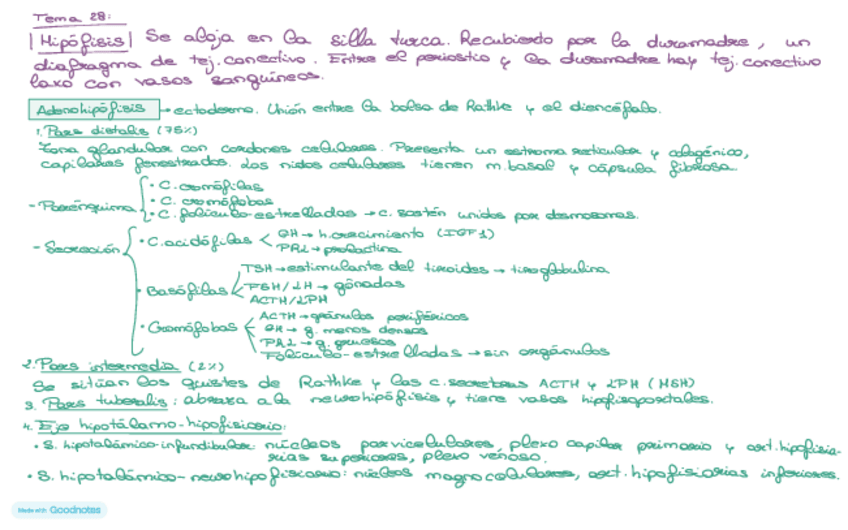 Tema 28:
Hipófisis Se aloja en la silla turca. Recubierto por la duramadre, un
diafragma de tej. conectivo. Entre el periostio y la duramadre hay tej. conectivo
laxo con vasos sanguíneos.
Adenohipófisis → ectodermo. Unión entre la bolsa de Rathke y el diencéfalo.
1. Pars distalis (75%)
Zona glandular con cordones celulares. Presenta un estroma reticular y colagénico,
capilares fenestrados. Los nidos celulares tienen m. basal y cápsula fibrosa.
- Parénquima
• C. cromófilas
• C. cromófobas
• C. folículo-estrelladas → c. sostén unidos por desmosomas.
- Secreción
• C. acidófilas < GH → h. crecimiento (IGF1)
PRL → prolactina
• Basófilas < TSH → estimulante del tiroides → tiroglobulina
FSH/LH → gónadas
ACTH/LPH
• Cromófobas < ACTH → gránulos periféricos
GH → g. menos densos
PRL → g. gruesos
Folículo-estrelladas → sin orgánulos
2. Pars intermedia (2%)
Se sitúan los quistes de Rathke y las c. secretoras ACTH y LPH (MSH)
3. Pars tuberalis: abraza a la neurohipófisis y tiene vasos hipofisoportales.
4. Eje hipotálamo-hipofisiario:
• S. hipotalámico-infundibular: núcleos parvicelulares, plexo capilar primario y art. hipofisia-
rias superiores, plexo venoso.
• S. hipotalámico-neurohipofisiario: núcleos magnocelulares, art. hipofisiarias inferiores.
Made with Goodnotes